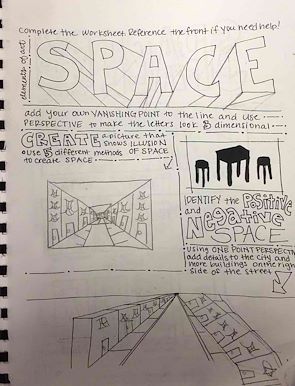 Complete the Worksheet. Reference the front if you need help!
elements of art:
SPACE
add your own VANISHING POINT to the line and use
PERSPECTIVE to make the letters look 3 dimensional
CREATE a picture that
shows ILLUSION
Use 5 different methods OF SPACE
to create SPACE
IDENTIFY the Positive
and Negative
SPACE
Using ONE POINT PERSPECTIVE
add details to the city and
more buildings on the right
side of the street